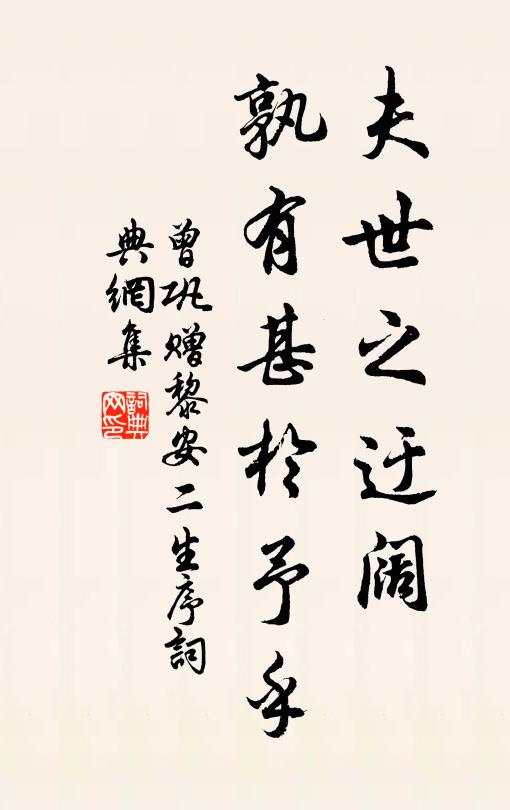 夫世之迂阔
孰有甚於予乎
曾巩赠黎安二生序詞
典網集
詞典网印